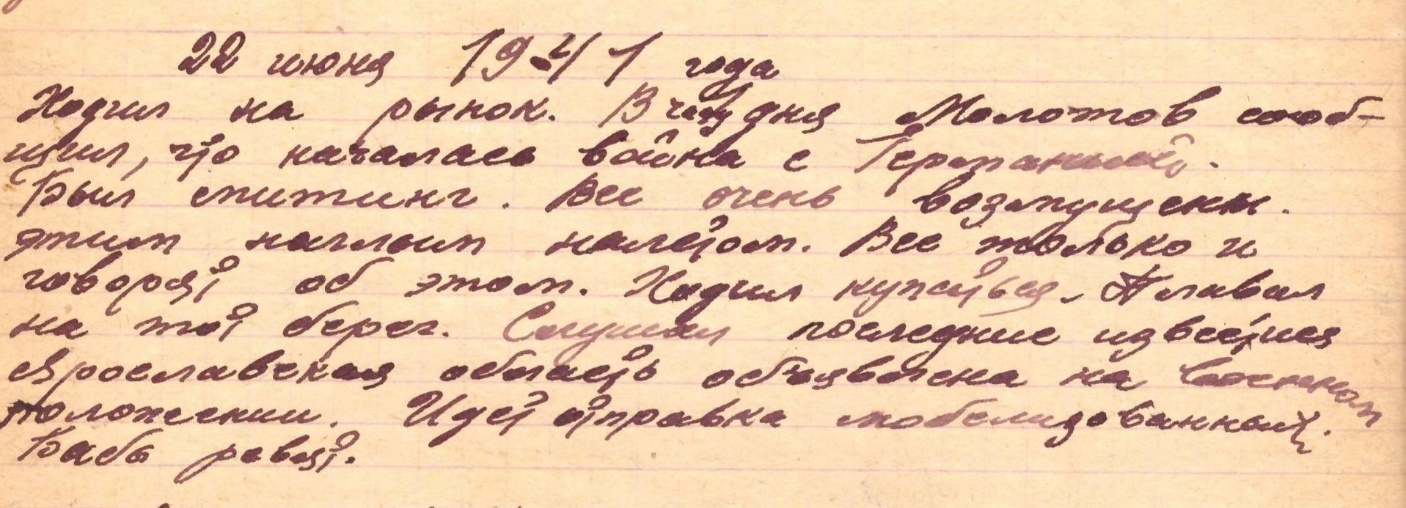 22 июня 1941 года
Ходил на рынок. В чеыу дня Молотов сооб-
щил, что началась война с Германией.
Был митинг. Все очень возмущены.
этим наглым налётом. Все только и
говорят об этом. Ходил купаться. Плавал
на тот берег. Слушал последние известия
Ярославская область объявлена на военном
положении. Идет отправка мобелизованных.
Бабы ревят.